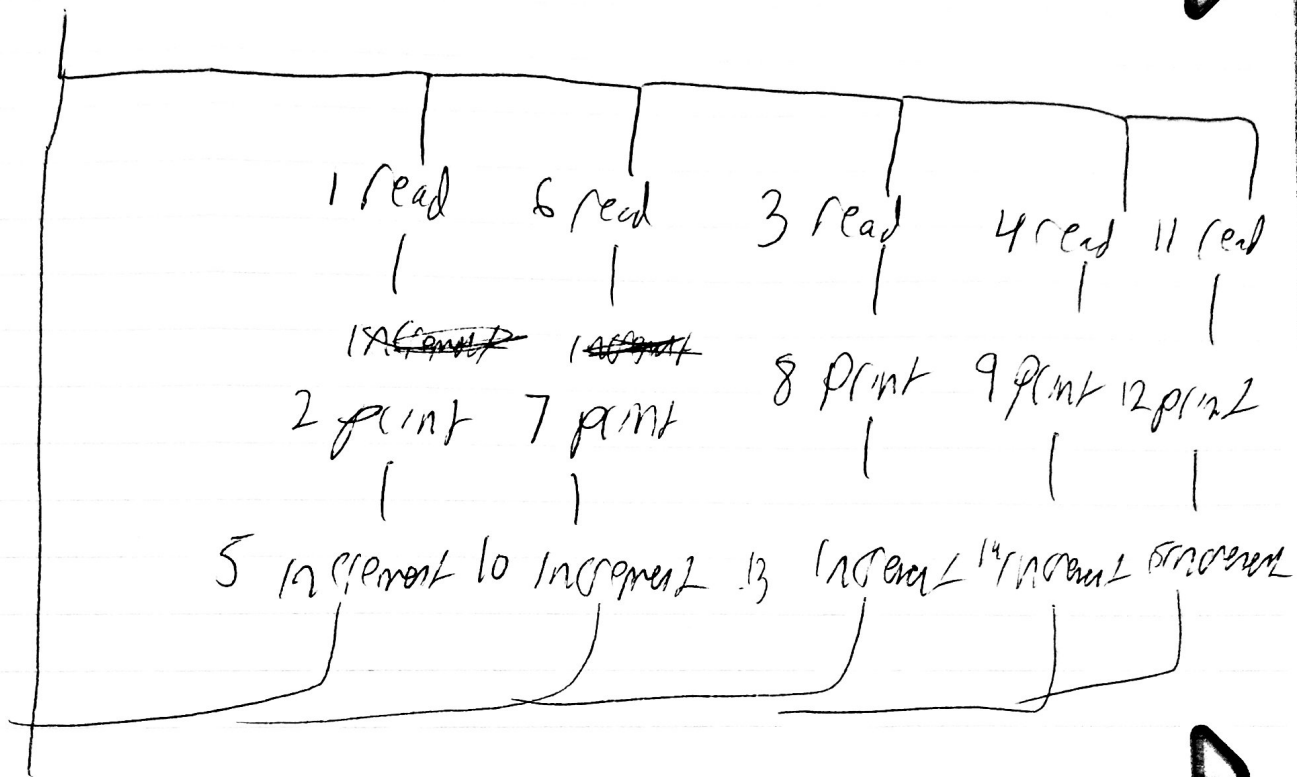 1 read 6 read 3 read 4 read 11 read
2 print 7 print 8 print 9 print 12 print
5 increment 10 increment 13 increment 14 increment 15 increment